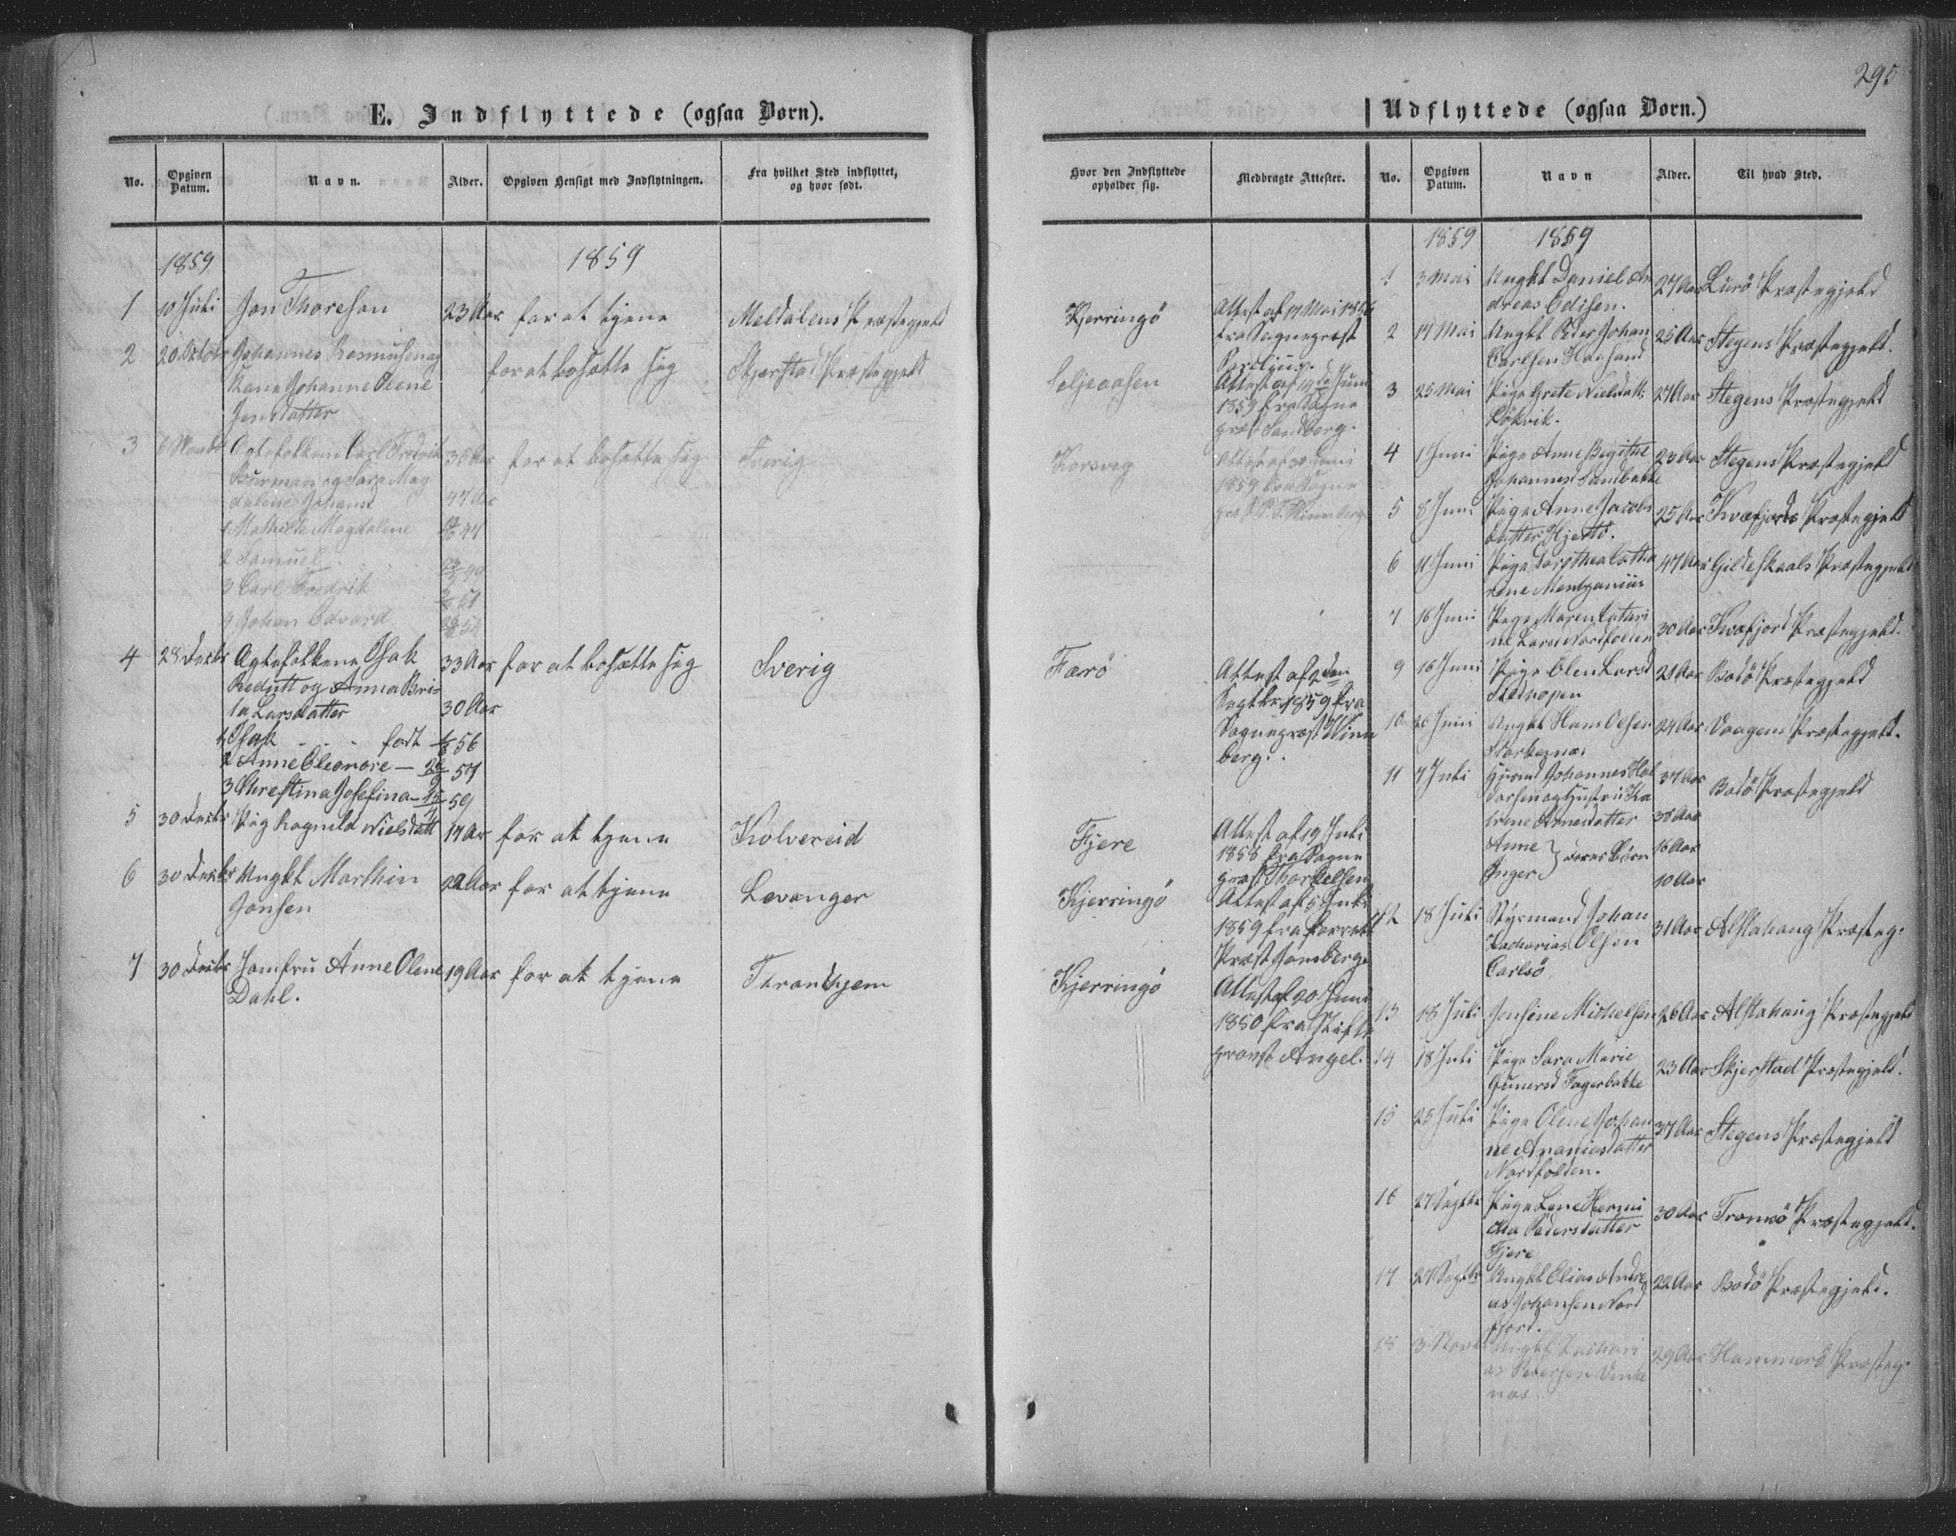 295
E. Indflyttede (ogsaa Børn).
No. Opgiven Datum. Navn. Alder. Opgiven Hensigt med Indflytningen. Fra hvilket Sted indflyttet, og hvor født. Hvor den Indflyttede opholder sig. Medbragte Attester.
1859 1859
1 10 Juli Jon Thoresen 23 Aar for at tjene Meldalens Præstegjeld Kjerringö Attest af 17 Mai 1856
fra Sognepræst
2 20 Oktobr Johannes Rasmusen og for at bosætte sig Skjerstad Præstegjeld Seljeaasen
Kone Johanne Attest af 14de Juni
Jensdatter 1859 fra Sogne
præst Sandberg.
3 Ægtefolkene Carl Fredrik 35 Aar for at bosætte sig Sverig Korsveg Attest af 30 Juni
Burman og Sara Mag 1859 fra Sogne
dalene Johansd 47 Aar præst Winnberg
1 Mathilde Magdalene
2 Samuel
3 Carl Fredrik
4 Johan Edvard
4 28 Decbr Ægtefolkene Isak 33 Aar for at bosætte sig Sverig Færö Attest af 2den
og Anna Bri- Septbr 1859 fra
ta Larsdatter 30 Aar Sognepræst Winn
1 Isak . . . født 56 berg.
2 Anne Eleonore — 57
3 Christina Josefina — 59
5 30 Decbr Pig Ragnild Nielsdatt 17 Aar for at tjene Kolvereid Fjere Attest af 19 Juli
1858 fra Sogne
præst Thorkelsen
6 30 Decbr Ungkl Marthin 22 Aar for at tjene Levanger Kjerringö Attest af 5 Juli
Jonsen 1859 fra
Præst Jonsberg
7 30 Decbr Jomfru Anne Olene 19 Aar for at tjene Throndhjem Kjerringö Attest af 20 Juni
Dahl. 1850 fra Stifts
provst Angel.
Udflyttede (ogsaa Børn.)
No. Opgiven Datum. Navn Alder. Til hvad Sted.
1859 1859
1 3 Mai Ungkl Daniel An 27 Aar Lurö Præstegjeld
dreas Edisen.
2 14 Mai Ungkl Peder Johan 25 Aar Stegens Præstegjeld.
Carlsen
3 25 Mai Pige Grete Nielsdatt. 27 Aar Stegens Præstegjeld
Lökvik.
4 1 Juni Pige Anne Begitte 23 Aar Stegens Præstegjeld
Johannesd
5 8 Juni Pige Anne Jacobs 25 Aar Kvæfjords Præstegjeld
datter
6 11 Juni Pige Dorthea Catha 47 Aar Gildeskaals Præstegjeld
rine
7 16 Juni Pige Maren Catari 30 Aar Kvæfjord Præstegjeld.
ne Larsd Nordfolden
9 16 Juni Pige Olen Larsd 21 Aar Bodö Præstegjeld
10 26 Juni Ungkl Hans Olsen 24 Aar Vaagens Præstegjeld.
11 7 Juli Johannes Hal 37 Aar Bodö Præstegjeld
dorsen og Hustru Ka
Arnesdatter 38 Aar
Anne } deres Börn 16 Aar
Inger 10 Aar
12 18 Juli Styrmand Johan 31 Aar Alstahaug Præsteg:
Zacharias Olsen
Carlsö
13 18 Juli Jensine Michelsen 26 Aar Alstahaug Præstegjeld
14 18 Juli Pige Sara Marie 23 Aar Skjerstad Præstegjeld.
Gunersd Fagerbakke
15 25 Juli Pige Olene Johan 37 Aar Stegens Præstegjeld
ne Ananiasdatter
Nordfolden.
16 27 Septbr Pige Lene Hermi 30 Aar Tromsö Præstegjeld.
Pedersdatter
Fjere
17 27 Septbr Ungkl Elias Andre 22 Aar Bodö Præstegjeld.
as Johansen Nord
fjord.
18 3 Novbr Ungkl Zachari 29 Aar Hammerö Præsteg.
as Pedersen
næs